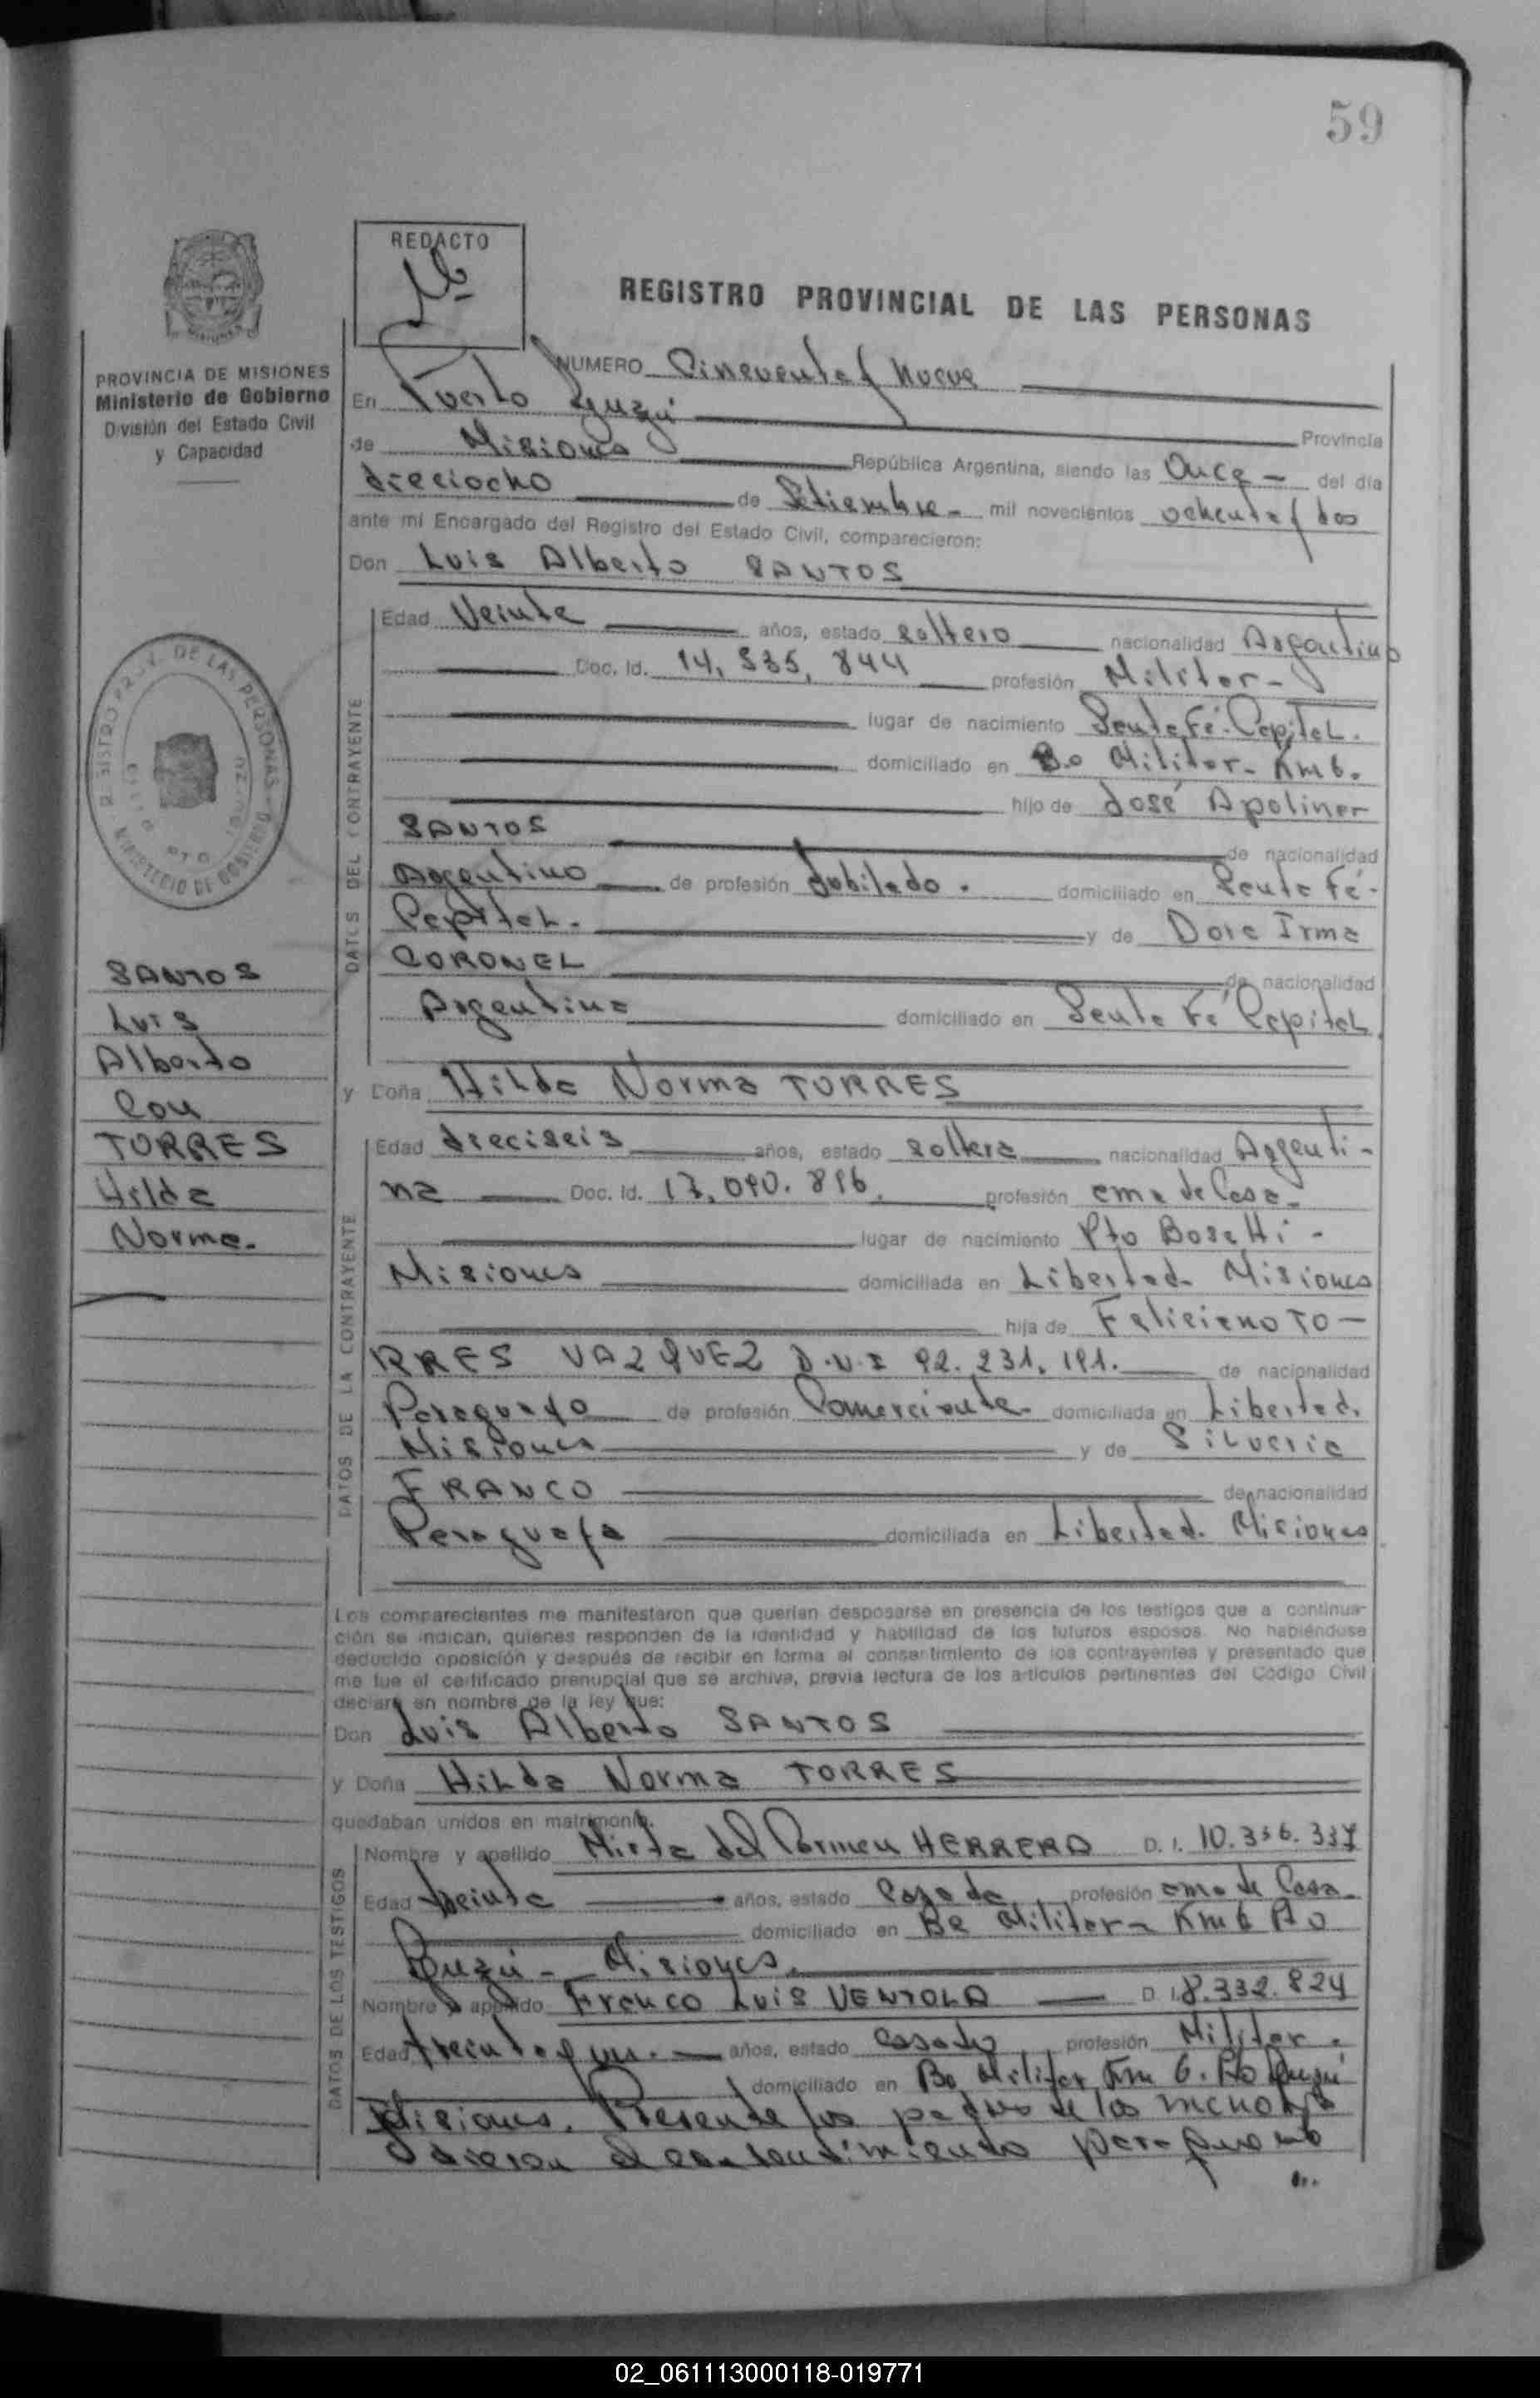 59
REDACTO
REGISTRO PROVINCIAL DE LAS PERSONAS
PROVINCIA DE MISIONES
Ministerio de Gobierno
División del Estado Civil
y Capacidad
NUMERO Cincuenta y Nueve
En Puerto Iguazú Provincia
de Misiones República Argentina, siendo las Once - del día
dieciocho de Setiembre - mil novecientos ochenta y dos
ante mi Encargado del Registro del Estado Civil, comparecieron:
Don Luis Alberto SANTOS
DATOS DEL CONTRAYENTE
Edad Veinte años, estado soltero nacionalidad Argentino
Doc. Id. 14.535.844 profesión Militar -
lugar de nacimiento Santa Fé - Capital.
domiciliado en Bo Militar - Km 6.
hijo de José Apolinar
SANTOS de nacionalidad
Argentino de profesión Jubilado. domiciliado en Santa Fé -
Capital. y de Dora Irma
CORONEL de nacionalidad
Argentina domiciliado en Santa Fé Capital
SANTOS
Luis
Alberto
Con
TORRES
Hilda
Norma.
y Doña Hilda Norma TORRES
DATOS DE LA CONTRAYENTE
Edad dieciseis años, estado soltera nacionalidad Argenti -
na Doc. Id. 17.090.896. profesión ama de Casa -
lugar de nacimiento Pto Bosetti -
Misiones domiciliada en Libertad - Misiones
hija de Feliciano TO -
RRES VAZQUEZ D.N.I 92.231.191. de nacionalidad
Paraguayo de profesión Comerciante - domiciliada en Libertad.
Misiones y de Silveria
FRANCO de nacionalidad
Paraguaya domiciliada en Libertad. Misiones
Los comparecientes me manifestaron que querían desposarse en presencia de los testigos que a continua-
ción se indican, quienes responden de la identidad y habilidad de los futuros esposos. No habiéndose
deducido oposición y después de recibir en forma el consentimiento de los contrayentes y presentado que
me fue el certificado prenupcial que se archiva, previa lectura de los artículos pertinentes del Código Civil
declaré en nombre de la ley que:
Don Luis Alberto SANTOS
y Doña Hilda Norma TORRES
quedaban unidos en matrimonio.
DATOS DE LOS TESTIGOS
Nombre y apellido Mirta del Carmen HERRERA D. I. 10.336.337
Edad treinta años, estado Casada profesión ama de Casa -
domiciliado en Bo Militar - Km 6 Pto
Iguazú - Misiones.
Nombre y apellido Franco Luis VENTOLA D. I. 8.332.824
Edad treinta y un. - años, estado Casado profesión Militar.
domiciliado en Bo Militar Km 6. Pto Iguazú
Misiones. Presente los padres de los menores
dieron el consentimiento para que
02_061113000118-019771